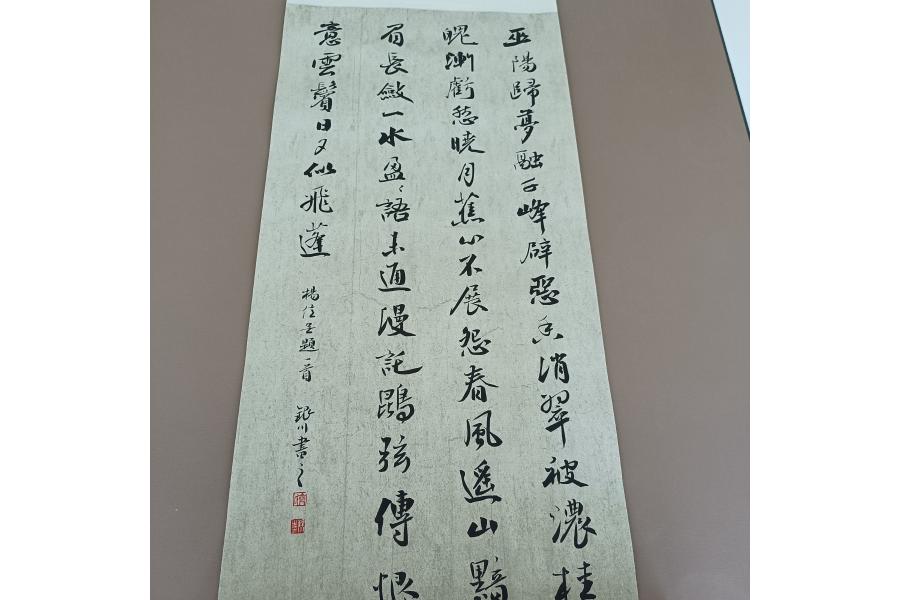 巫陽歸夢融千峰辟惡香消翠被濃桂
魄漸虧愁曉月蕉心不展怨春風遙山黯
眉長斂一水盈〻語未通漫託鵾弦傳恨
意雲鬢日夕似飛蓬
楊億無題一首
銀川書之